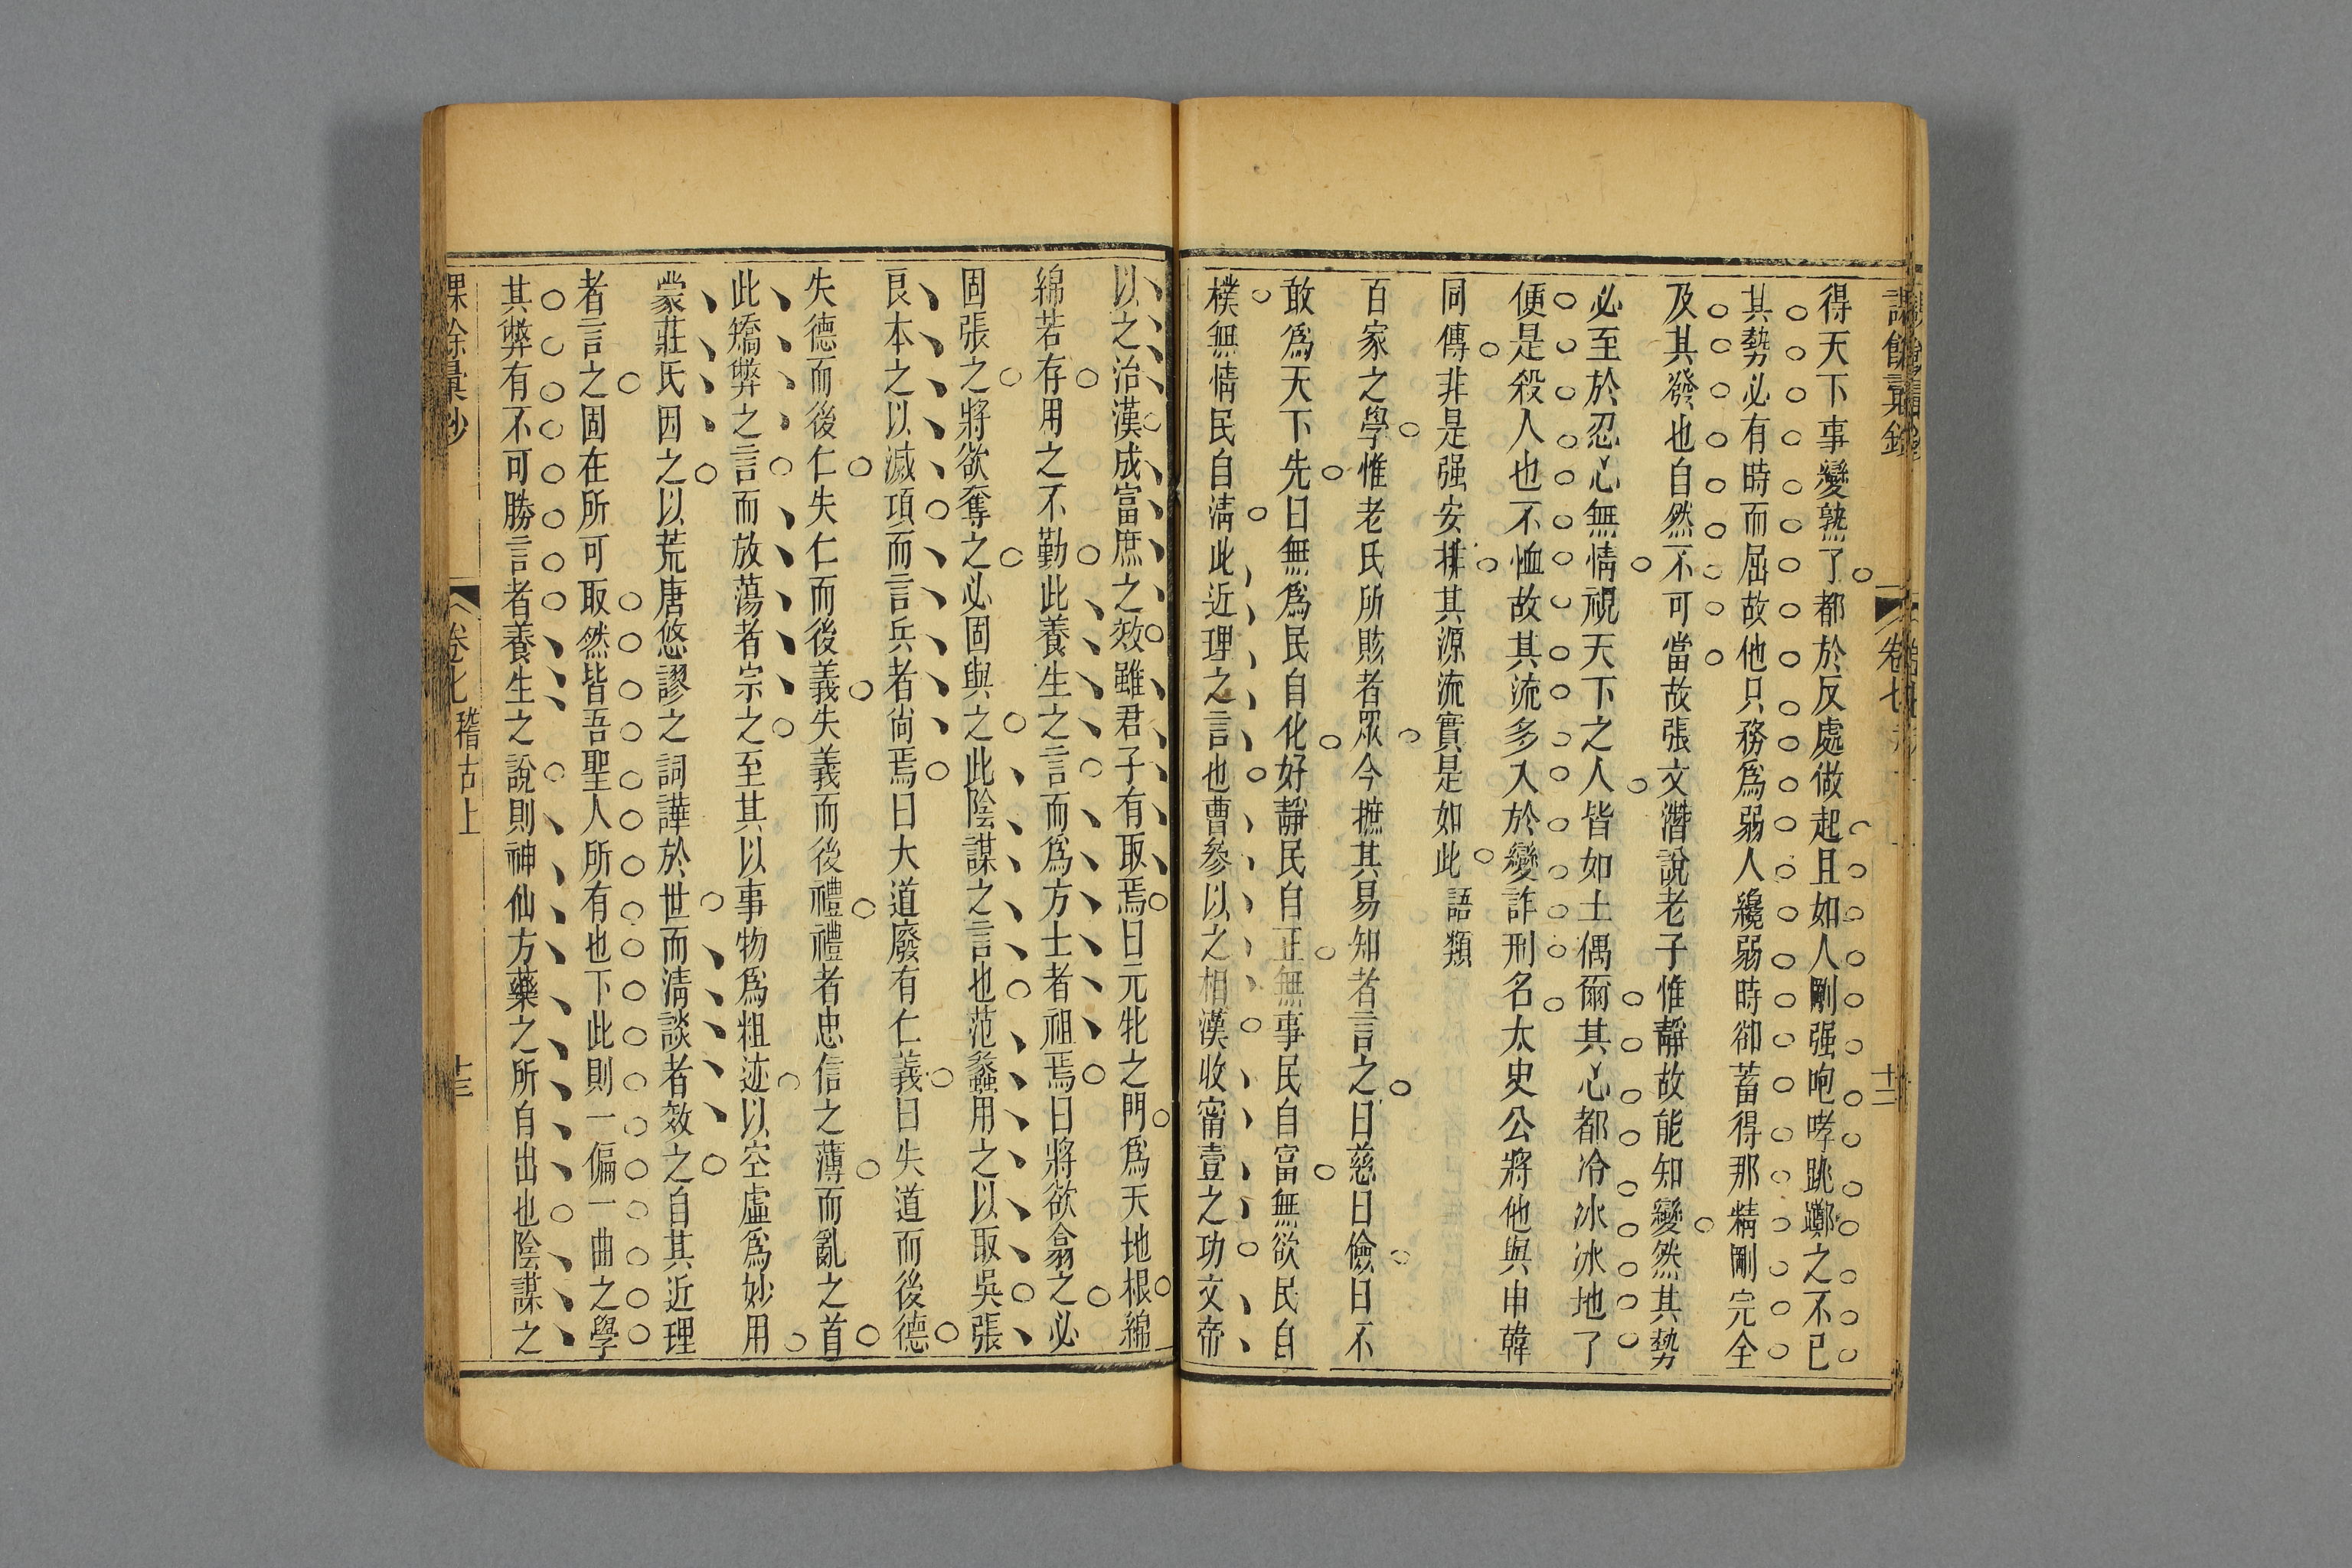 課餘彙鈔
卷七
十二
得天下事變熟了都於反處做起且如人剛强咆哮跳躑之不已
其勢必有時而屈故他只務爲弱人纔弱時卻蓄得那精剛完全
及其發也自然不可當故張文潛說老子惟靜故能知變然其勢
必至於忍心無情視天下之人皆如土偶爾其心都冷冰冰地了
便是殺人也不恤故其流多入於變詐刑名太史公將他與申韓
同傳非是强安排其源流實是如此語類
百家之學惟老氏所賅者眾今摭其易知者言之曰慈曰儉曰不
敢爲天下先曰無爲民自化好靜民自正無事民自富無欲民自
樸無情民自清此近理之言也曹參以之相漢收甯壹之功文帝
以之治漢成富庶之效雖君子有取焉曰元牝之門爲天地根綿
綿若存用之不勤此養生之言而爲方士者祖焉曰將欲翕之必
固張之將欲奪之必固與之此陰謀之言也范蠡用之以取吳張
良本之以滅項而言兵者尚焉曰大道廢有仁義曰失道而後德
失德而後仁失仁而後義失義而後禮禮者忠信之薄而亂之首
此矯弊之言而放蕩者宗之至其以事物爲粗迹以空虛爲妙用
蒙莊氏因之以荒唐悠謬之詞譁於世而清談者效之自其近理
者言之固在所可取然皆吾聖人所有也下此則一偏一曲之學
其弊有不可勝言者養生之說則神仙方藥之所自出也陰謀之
課餘彙鈔
卷七 稽古上
十三